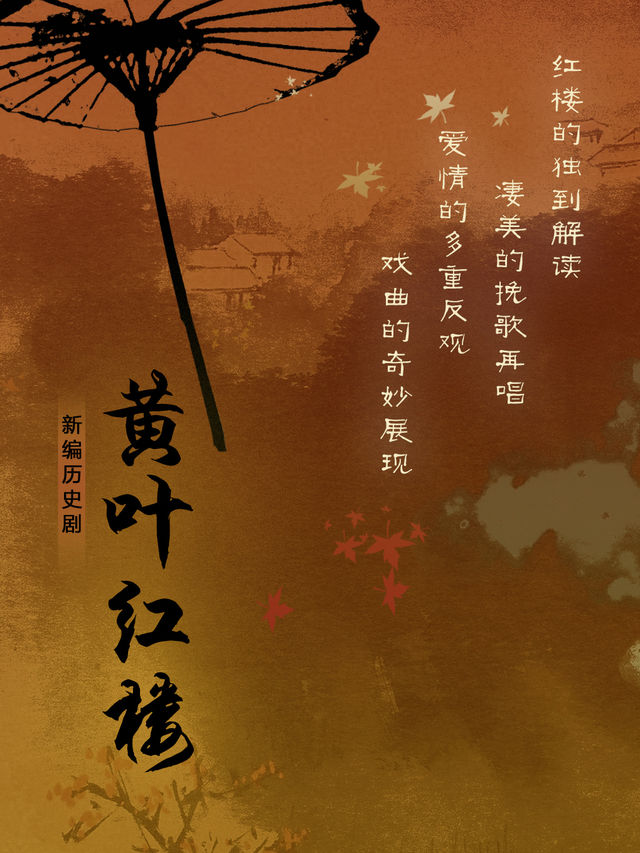 红楼的独到解读
凄美的挽歌再唱
爱情的多重反观
戏曲的奇妙展现
黄叶红楼
新编历史剧